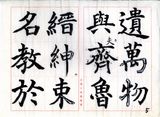 遺萬物
與齊魯
縉紳束
名教於
5